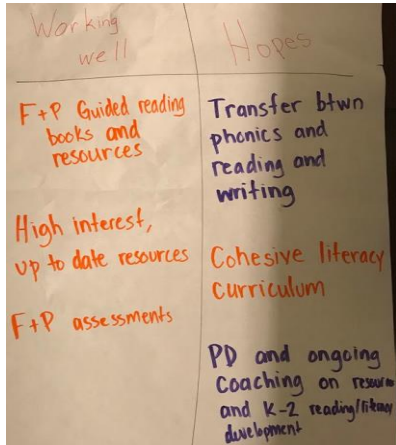 Working
well
F+P Guided reading
books and
resources
High interest,
up to date resources
F+P assessments
Hopes
Transfer btwn
phonics and
reading and
writing
Cohesive literacy
curriculum
PD and ongoing
Coaching on resources
and K-2 reading/literacy
development